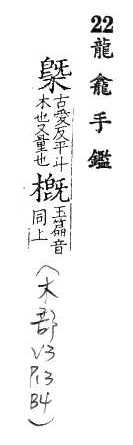 22龍龕手鑑
㮣古愛反平斗
木也又量也槪玉篇音
同上
（木部
V3
P.13
B4）